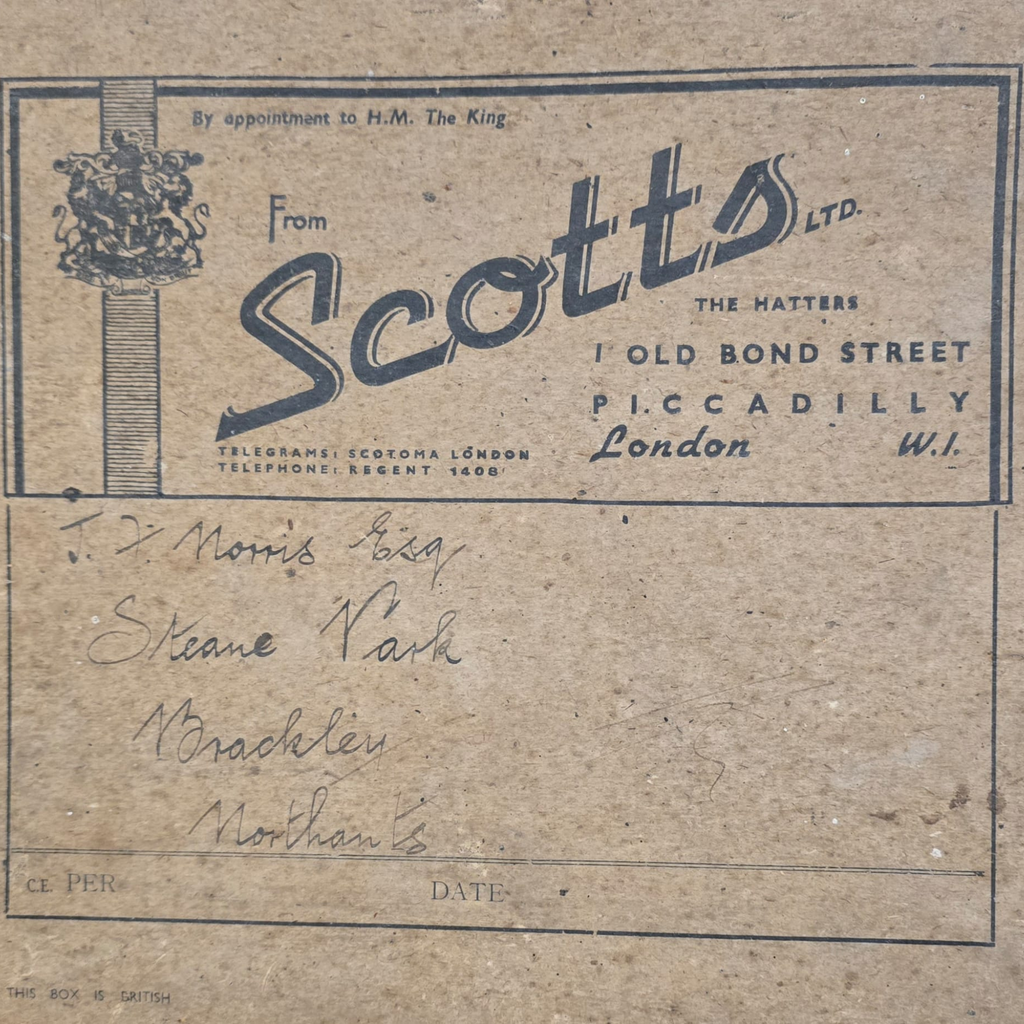 By appointment to H.M. The King
From
Scotts LTD.
THE HATTERS
1 OLD BOND STREET
PICCADILLY
London W.1.
TELEGRAMS: SCOTOMA LONDON
TELEPHONE: REGENT 1408
J. F Norris Esq
Steane Park
Brackley
Northants
C.E. PER DATE
THIS BOX IS BRITISH